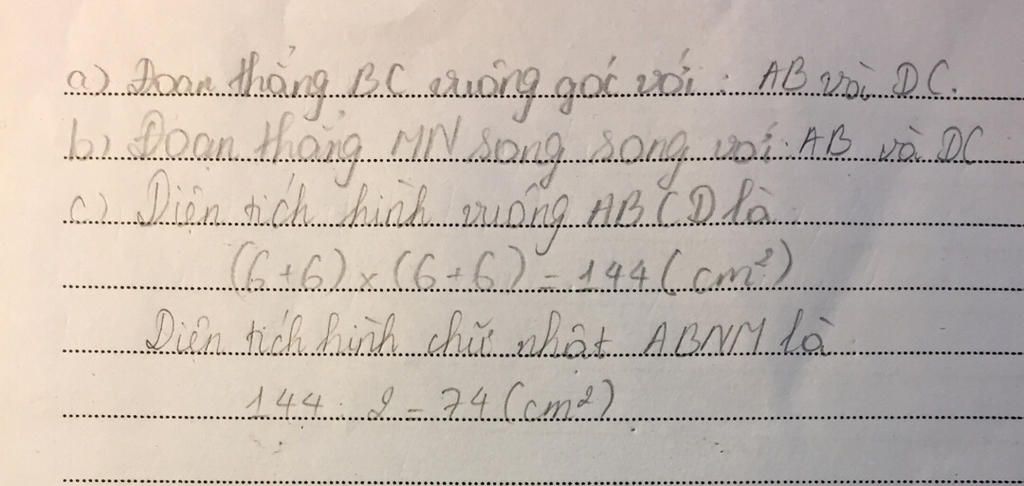 a) Đoạn thẳng BC vuông góc với: AB và DC.
b) Đoạn thẳng MN song song với: AB và DC
c) Diện tích hình vuông ABCD là
(6+6)×(6+6) = 144 (cm²)
Diện tích hình chữ nhật ABNM là
144 : 2 = 74 (cm²)